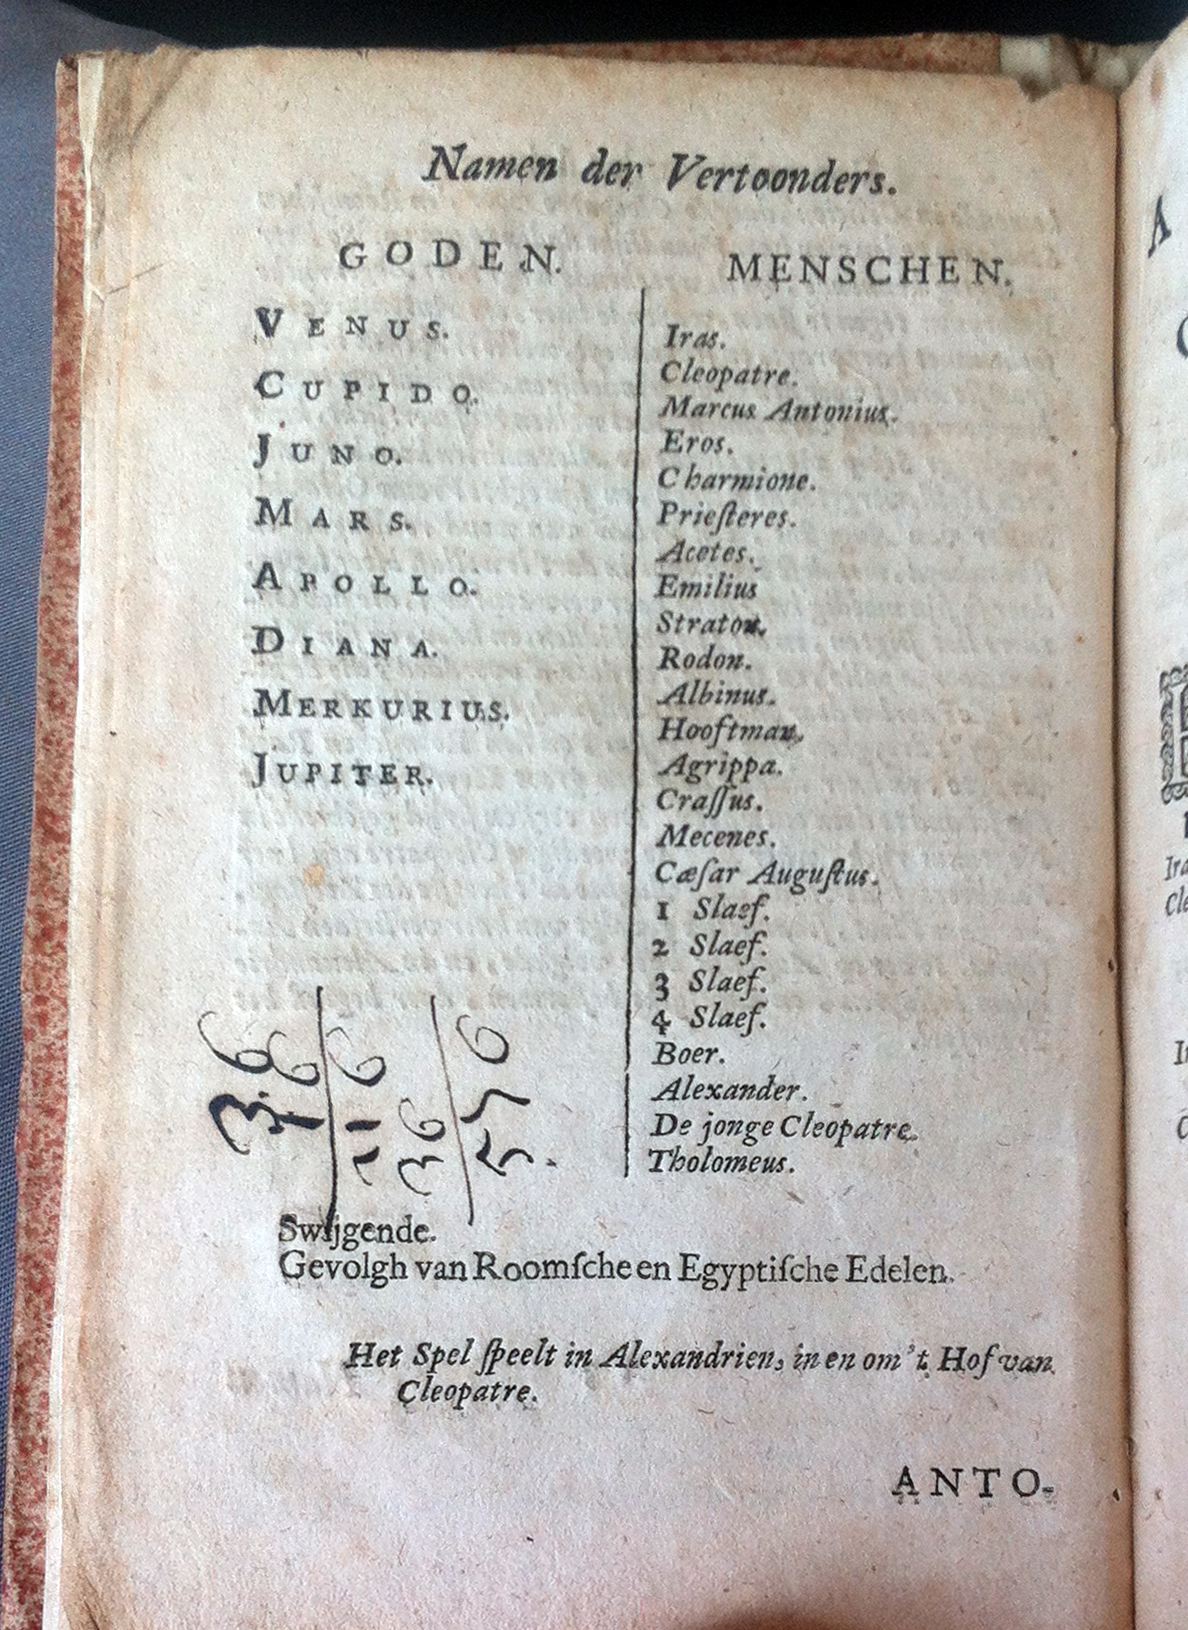 Namen der Vertoonders.
GODEN.
VENUS.
CUPIDO.
JUNO.
MARS.
APOLLO.
DIANA.
MERKURIUS.
JUPITER.
MENSCHEN.
Iras.
Cleopatre.
Marcus Antonius.
Eros.
Charmione.
Prieſteres.
Acetes.
Emilius
Straton.
Rodon.
Albinus.
Hooftman.
Agrippa.
Craſſus.
Mecenes.
Cæſar Auguſtus.
1 Slaef.
2 Slaef.
3 Slaef.
4 Slaef.
Boer.
Alexander.
De jonge Cleopatre.
Tholomeus.
36
116
36
576
Swijgende.
Gevolgh van Roomſche en Egyptiſche Edelen.
Het Spel ſpeelt in Alexandrien, in en om 't Hof van
Cleopatre.
ANTO-